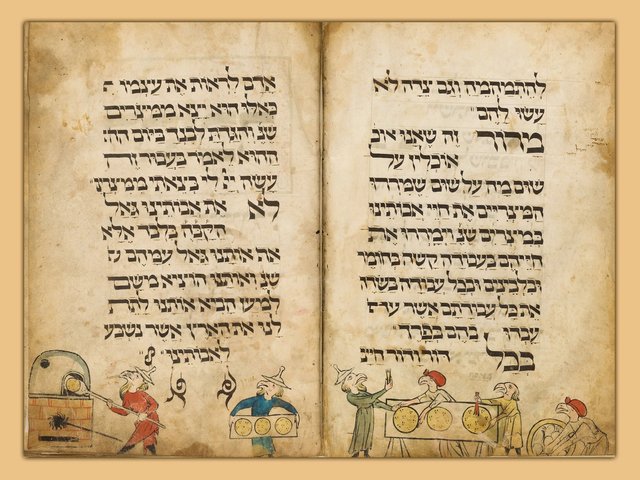 להתמהמה וגם צדה לא
עשו להם
מרור זה שאנו אוכ
אוכלין על
שום מה על שום שמררו
המצריים את חיי אבותינו
במצרים שנ וימררו את
חייהם בעבודה קשה בחומר
ובלבינים ובכל עבודה בשדה
את כל עבודתם אשר
עבדו בהם בפרך
בכל דור ודור חייב
אדם לראות את עצמו
כאלו הוא יצא ממצרים
שנ והגדת לבנך ביום ההו
ההוא לאמר בעבור זה
עשה לי בצאתי ממצרים
לא את אבותינו גאל
הקבה בלבד אלא
את אותנו גאל עמהם
שנ ואותנו הוציא משם
למען הביא אותנו לתת
לנו את הארץ אשר נשבע
לאבותינו